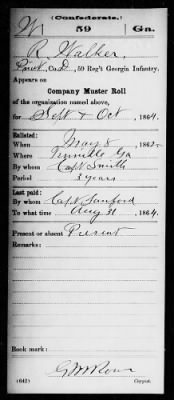 (Confederate.)
W 59 Ga.
R Walker,
Pvt, Co. D, 59 Reg't Georgia Infantry.
Appears on
Company Muster Roll
of the organization named above,
for Sept & Oct, 1864.
Enlisted:
When May 8, 1862.
Where Tennille Ga
By whom Capt Smith
Period 3 years
Last paid:
By whom Capt Sanford
To what time Aug 31, 1864.
Present or absent Present
Remarks:
Book mark:
(642) Copyist.